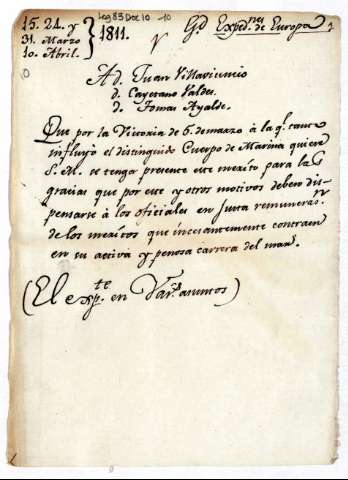 Leg 83 Doc 10 10
15. 24. y
31. Marzo
10. Abril.
1811.
Gd Exped.nes de Europa
A d. Juan Villavicencio
d. Cayetano Valdes
d. Tomas Ayalde.
Que por la Victoria de 5. de marzo à la q.e tanto
influyò el distinguido Cuerpo de Marina quiere
S. M. se tenga presente este merito para las
gracias que por este y otros motivos deben dis-
pensarse à los oficiales en justa remuneras.n
de los meritos que incesantemente contraen
en su activa y penosa carrera del mar.
(El exp.te en Var.s asuntos)